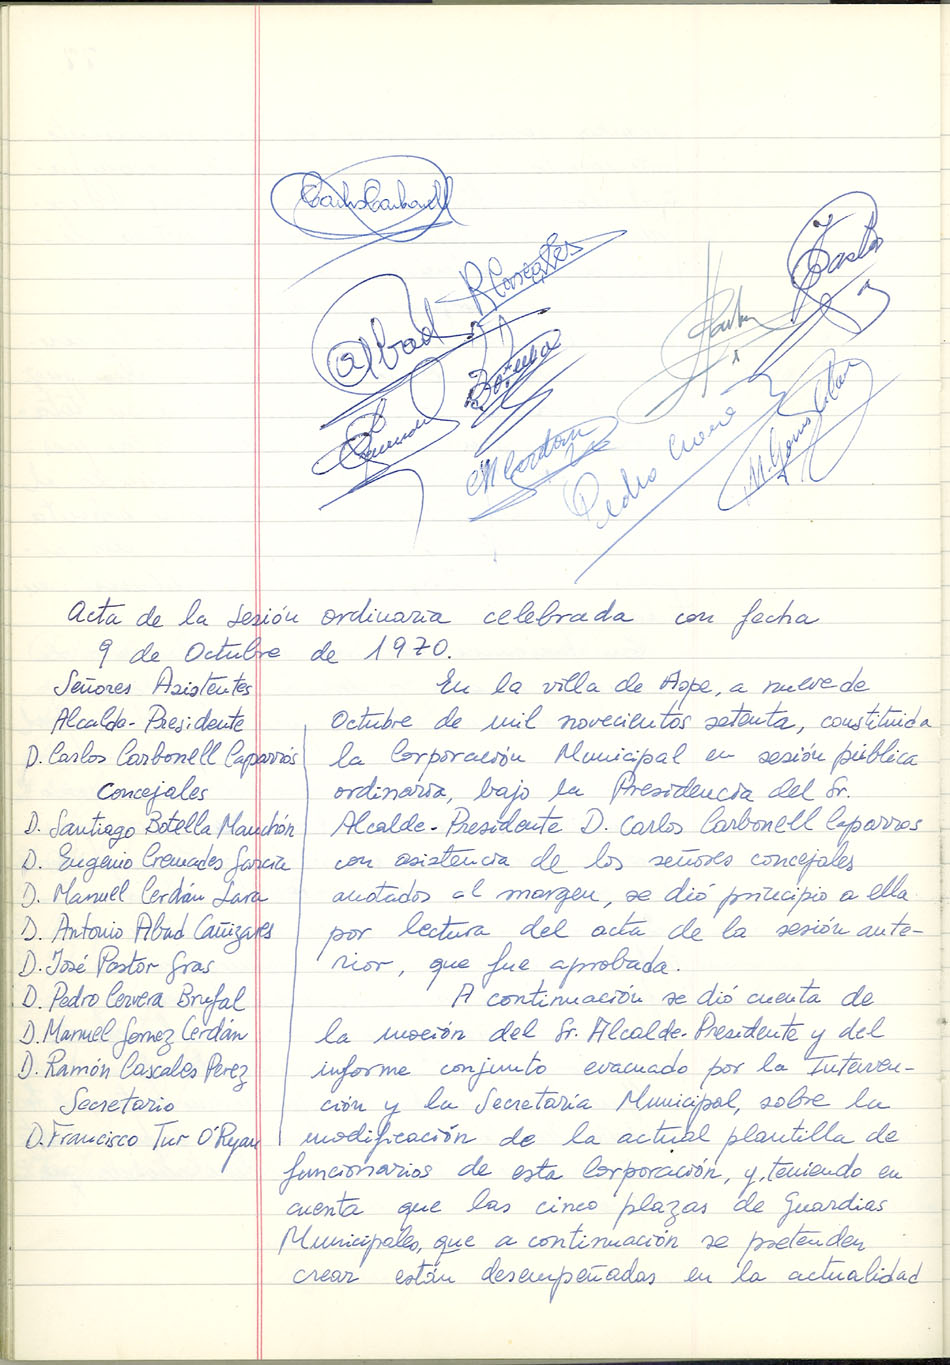 Carlos Carbonell
Abad
Botella
M Cerdán
Pedro Cervera
Pastor
M. Gomez Cerdan
Acta de la sesión ordinaria celebrada con fecha
9 de Octubre de 1970.
Señores Asistentes
Alcalde-Presidente
D. Carlos Carbonell Caparrós
Concejales
D. Santiago Botella Manchón
D. Eugenio Cremades García
D. Manuel Cerdán Lara
D. Antonio Abad Cañizares
D. José Pastor Gras
D. Pedro Cervera Brufal
D. Manuel Gomez Cerdán
D. Ramón Cascales Perez
Secretario
D. Francisco Tur O'Ryan
En la villa de Aspe, a nueve de
Octubre de mil novecientos setenta, constituida
la Corporación Municipal en sesión pública
ordinaria, bajo la Presidencia del Sr.
Alcalde-Presidente D. Carlos Carbonell Caparros
con asistencia de los señores concejales
anotados al margen, se dió principio a ella
por lectura del acta de la sesión ante-
rior, que fue aprobada.
A continuación se dió cuenta de
la moción del Sr. Alcalde-Presidente y del
informe conjunto evacuado por la Interven-
ción y la Secretaría Municipal, sobre la
modificación de la actual plantilla de
funcionarios de esta Corporación, y, teniendo en
cuenta que las cinco plazas de Guardias
Municipales, que a continuación se pretenden
crear están desempeñadas en la actualidad